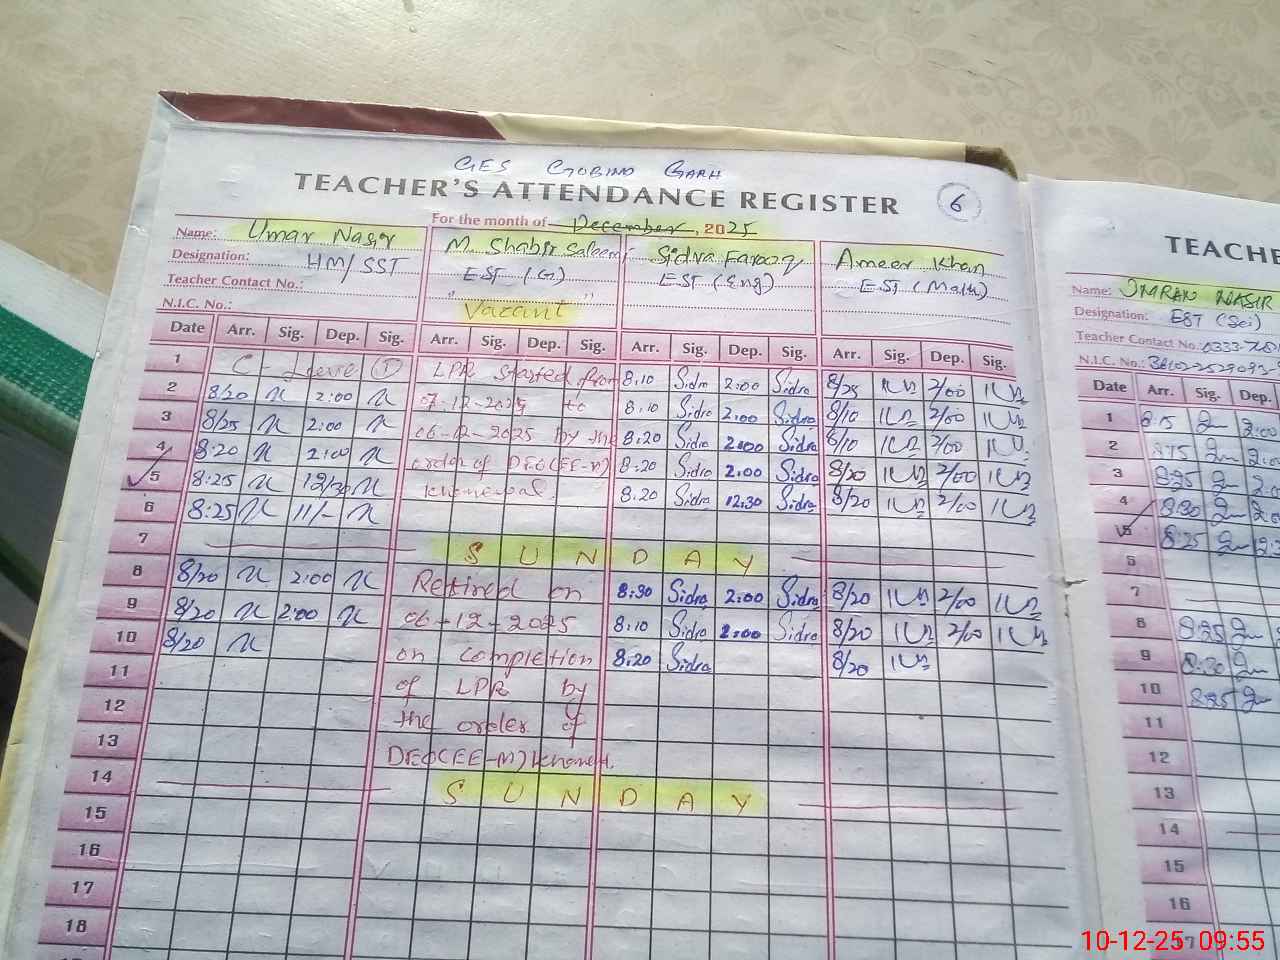 GES GOBIND GARH
TEACHER'S ATTENDANCE REGISTER
6
For the month of December, 2025
Name: Umar Nasir M. Shabir Saleemi Sidra Farooq Ameer Khan
Designation: HM/SST EST (G) EST (Eng) EST (Math)
Teacher Contact No.:
N.I.C. No.: " Vacant "
Date Arr. Sig. Dep. Sig. Arr. Sig. Dep. Sig. Arr. Sig. Dep. Sig. Arr. Sig. Dep. Sig.
1 C-Leave 1 LPR started from 8:10 Sidra 2:00 Sidra 8/25 2/00
2 8/20 2:00 07-12-2025 to 8:10 Sidra 2:00 Sidra 8/10 2/00
3 8/25 2:00 06-12-2025 by the 8:20 Sidra 2:00 Sidra 8/10 2/00
4 8:20 2:00 order of DEO(EE-M) 8:20 Sidra 2:00 Sidra 8/20 2/00
5 8:25 12/30 Khanewal. 8:20 Sidra 12:30 Sidra 8/20 2/00
6 8:25 11/-
7 SUNDAY
8 8/20 2:00 Retired on 8:30 Sidra 2:00 Sidra 8/20 2/00
9 8/20 2:00 06-12-2025 8:10 Sidra 2:00 Sidra 8/20 2/00
10 8/20 on completion 8:20 Sidra 8/20
11 of LPR by
12 the order of
13 DEO(EE-M)
14 SUNDAY
15
16
17
18
TEACHE
Name: IMRAN NASIR
Designation: EST (Sci)
Teacher Contact No.:
N.I.C. No.:
Date Arr. Sig. Dep.
1 8:15 2:00
2 8:15
3 8:25
4 8:30
5 8:25
6
7
8 8:25
9 8:30
10 8:25
11
12
13
14
15
16
17
10-12-25 09:55